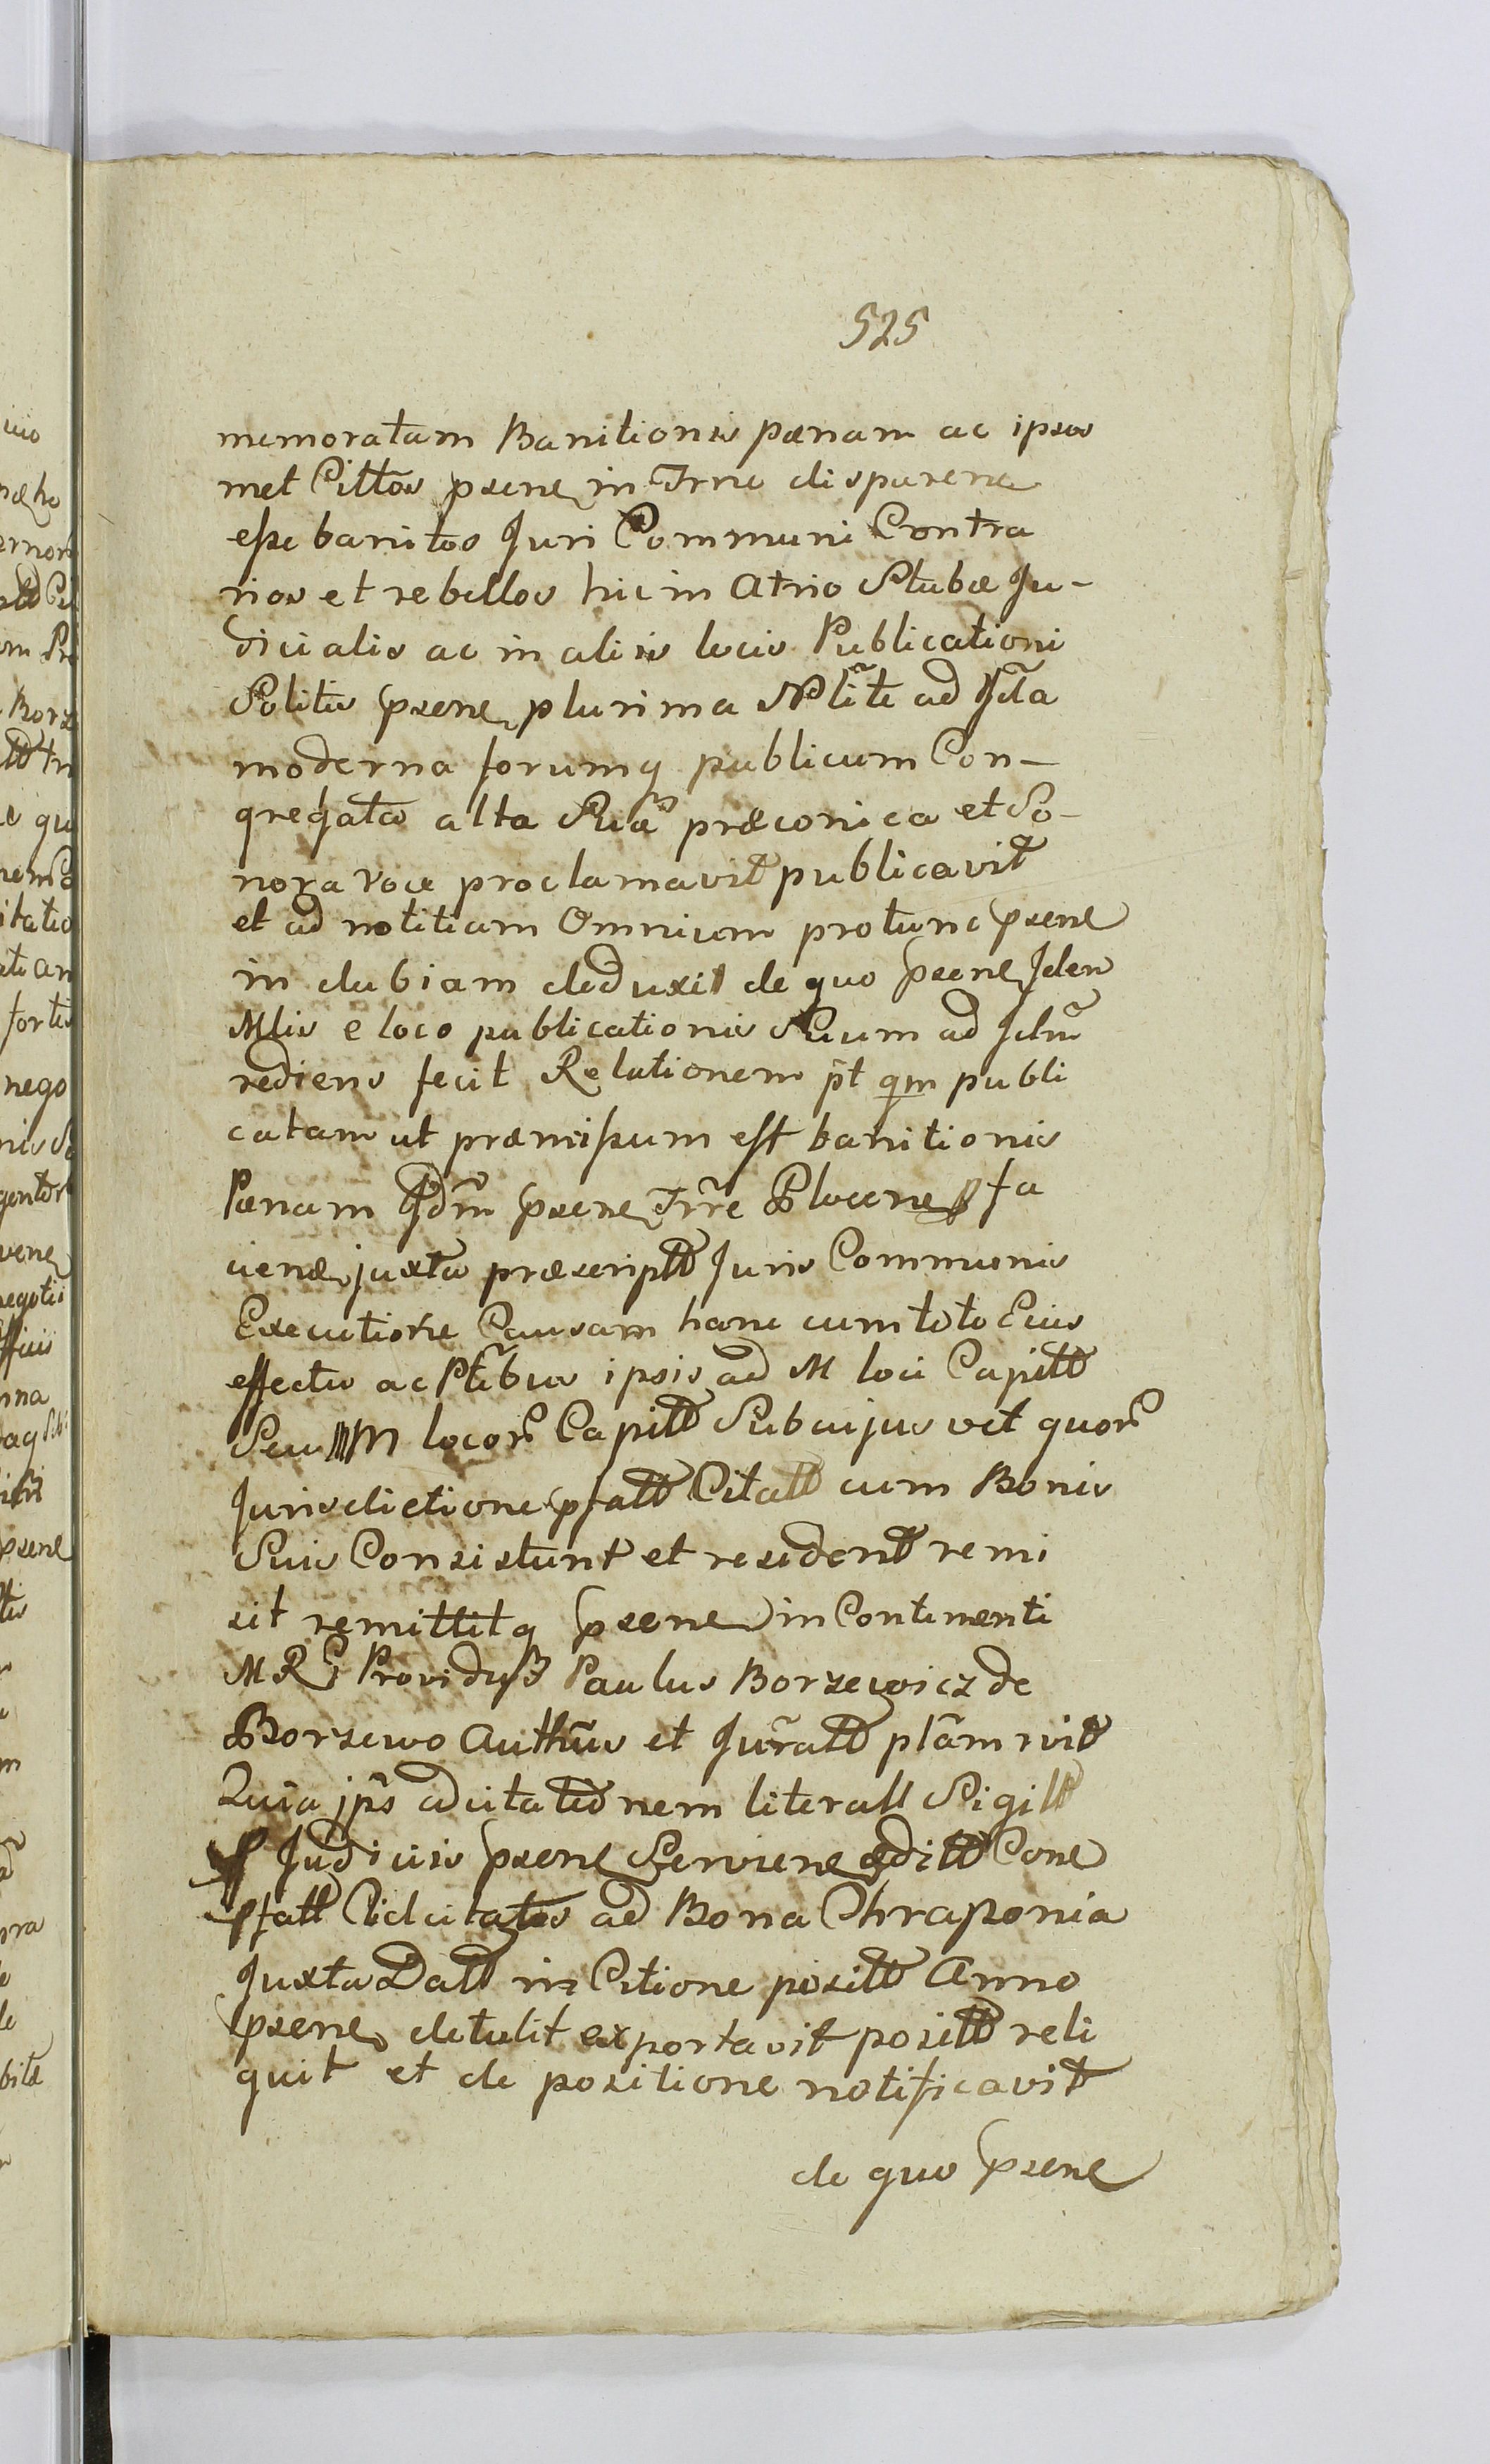 525
memoratam Banitionis pænam ac ipsos
met Cittos psene in Trmo disparene
esse banitos Juri Communi Contra
rios et rebelles hic in Atrio Stubæ Ju-
dicialis ac in aliis locis Publicationi
Solitis psene plurima Nlite ad Jcta
moderna forumq publicum Con-
gregata alta Sua præconica et So-
nora voce proclamavit publicavit
et ad notitiam Omnium protunc psene
in dubiam deduxit de quo psene Iden
Mlis e loco publicationis Suum ad
rediens fecit Relationem pt qm publi
catam ut præmissum est banitionis
Pænam psene Trre Plocene fa
ciene juxta præscriptt Juris Communis
Executione Causam hanc cum toto Eius
effectu ac Ptibus ipsis ad M loci Capitt
Seu MM locor Capitt Sub cujus vel quor
Jurisdictione pfatt Citatt cum Bonis
Suis Consistunt et resident remi
sit remittitq psene in Continenti
MRG Providus Paulus Borzewicz de
Borzewo Authus et Juratt plam rvit
Quia jps adcitationem literall Sigill
Judiciis psene Serviene editt Cone
pfatt Citatos ad Bona Chraponia
Juxta Datt in Citione positt Anno
psene detulit exportavit positt reli
quit et de positione notificavit
de quo psene